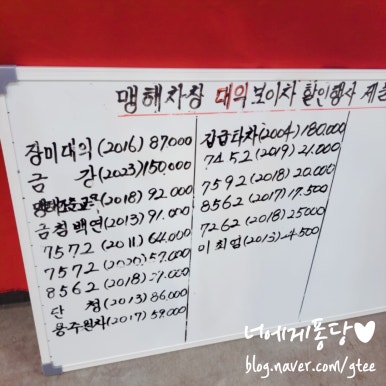 맹해차창 대익 보이차 할인행사 제품
장미대익 (2016) 87000
금 강 (2023) 150,000
(2018) 92,000
금침백연 (2013) 91,000
7572 (2011) 64,000
7572 (2020) 57,000
8562 (2018)
단 청 (2013) 86,000
용주원차 (2017) 59,000
집급타차 (2004) 180,000
7452 (2019) 21,000
7592 (2018) 20,000
8562 (2017) 17,500
7262 (2018) 25000
미 최엽 (2013) 24,500
너에게퐁당♥
blog.naver.com/gtee